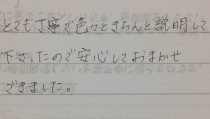 とても丁寧で色々ときちんと説明して
下さったので安心しておまかせ
できました。